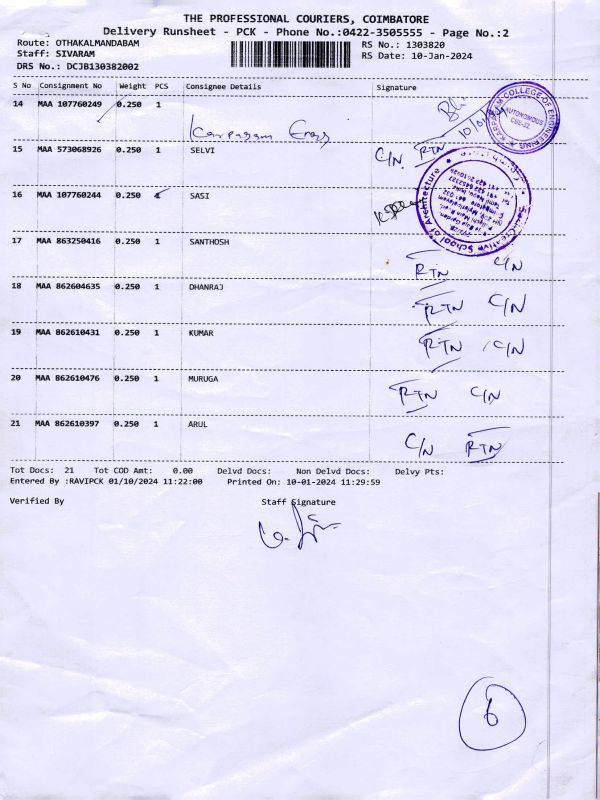 THE PROFESSIONAL COURIERS, COIMBATORE
Delivery Runsheet - PCK - Phone No.:0422-3505555 - Page No.:2
Route: OTHAKALMANDABAM
RS No.: 1303820
Staff: SIVARAM
RS Date: 10-Jan-2024
DRS No.: DCJB130382002
S No Consignment No Weight PCS Consignee Details Signature
14 MAA 107760249 0.250 1
Karpagam Engg
15 MAA 573068926 0.250 1 SELVI C/N RTN
16 MAA 107760244 0.250 1 SASI
17 MAA 863250416 0.250 1 SANTHOSH RTN C/N
18 MAA 862604635 0.250 1 DHANRAJ RTN C/N
19 MAA 862610431 0.250 1 KUMAR RTN C/N
20 MAA 862610476 0.250 1 MURUGA RTN C/N
21 MAA 862610397 0.250 1 ARUL C/N RTN
Tot Docs: 21 Tot COD Amt: 0.00 Delvd Docs: Non Delvd Docs: Delvy Pts:
Entered By :RAVIPCK 01/10/2024 11:22:00 Printed On: 10-01-2024 11:29:59
Verified By Staff Signature
KARPAGAM COLLEGE OF ENGINEERING
AUTONOMOUS
CBE-32
Creative School of Architecture
6